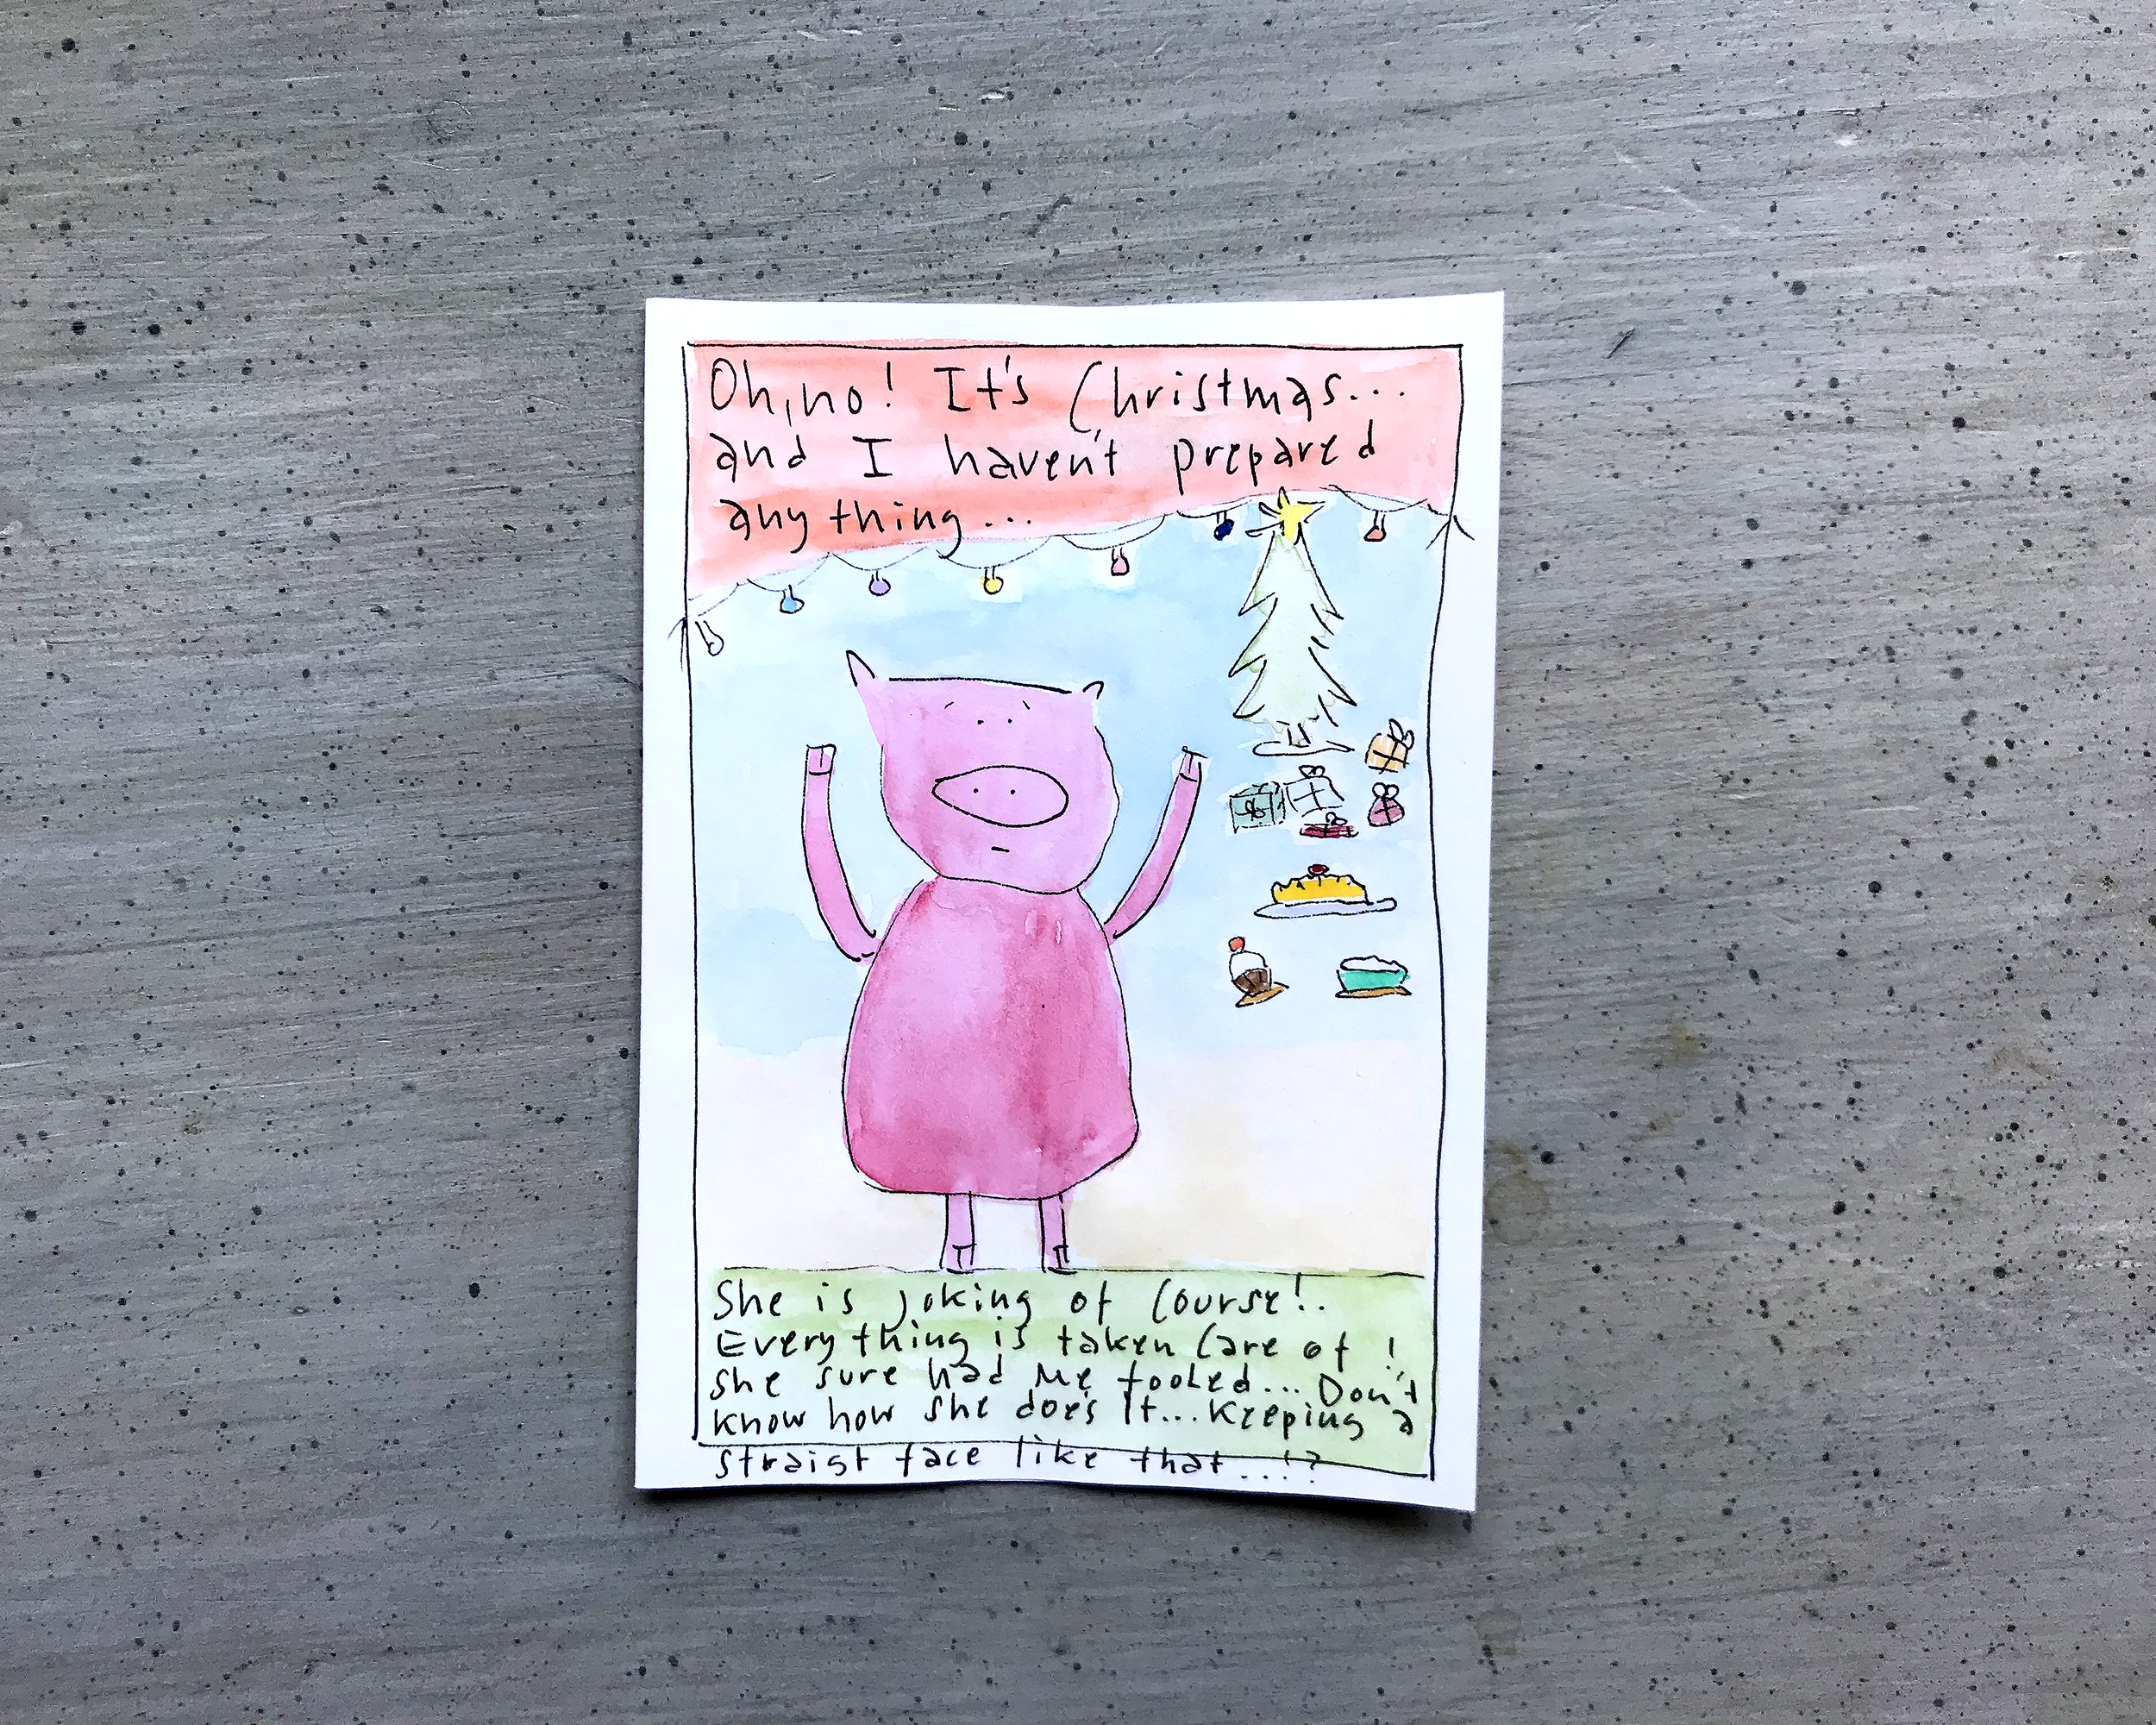 Oh, no! It's Christmas...
and I haven't prepared
anything...
She is joking of course!.
Everything is taken care of!
She sure had me fooled... Don't
know how she does it... keeping a
straigt face like that...!?